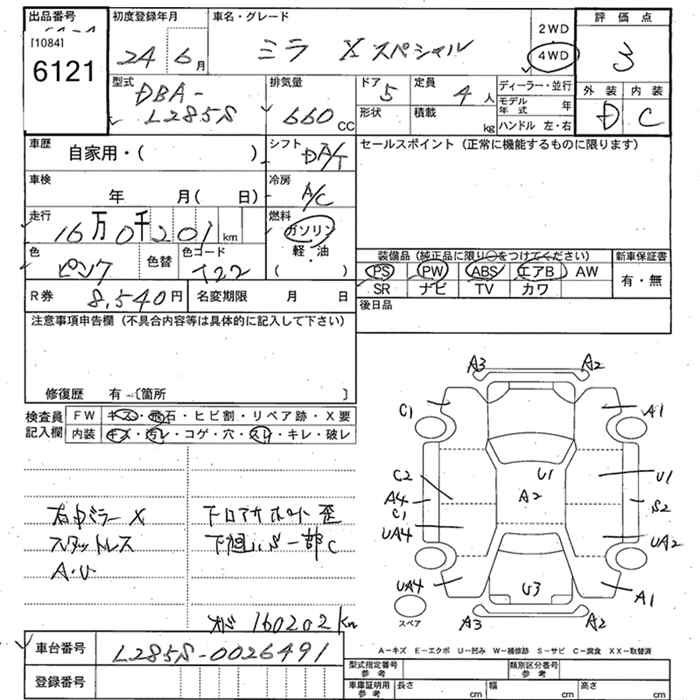 出品番号 初度登録年月 車名・グレード 評価点
[1084]
6121 24 6月 ミラ Xスペシャル 2WD 4WD 3
型式 排気量 ドア 定員 ディーラー・並行 外装 内装
DBA-
L285S 660CC 5 4人 モデル年式 年 D C
形状 積載 kg ハンドル 左・右
車歴 シフト セールスポイント(正常に機能するものに限ります)
自家用・( ) DA/T
車検 冷房
年 月( 日) A/C
走行 燃料
16万0千201km ガソリン
軽・油
( )
色 色替 色コード 装備品(純正品に限り○をつけてください) 新車保証書
ピンク T22 PS PW ABS エアB AW 有・無
SR ナビ TV カワ
R券 8,540円 名変期限 月 日 後日品
注意事項申告欄(不具合内容等は具体的に記入して下さい)
修復歴 有-〔箇所 〕
検査員記入欄 FW キズ・飛石・ヒビ割・リペア跡・X要
内装 キズ・汚レ・コゲ・穴・スレ・キレ・破レ
A3 A2
C1 A1
C2 U1 U1
A4 A2 S2
C1
UA4 UA2
UA4 U3 A1
A3 A2
スペア
右ドミラー X
スタットレス
A・U
下回S一部C
メーター 160202km
A-キズ E-エクボ U-凹み W-補修跡 S-サビ C-腐食 XX-取替済
車台番号 L285S-0026491
登録番号
型式指定番号 参考 類別区分番号 参考
車庫証明用 参考 長さ cm 幅 cm 高さ cm